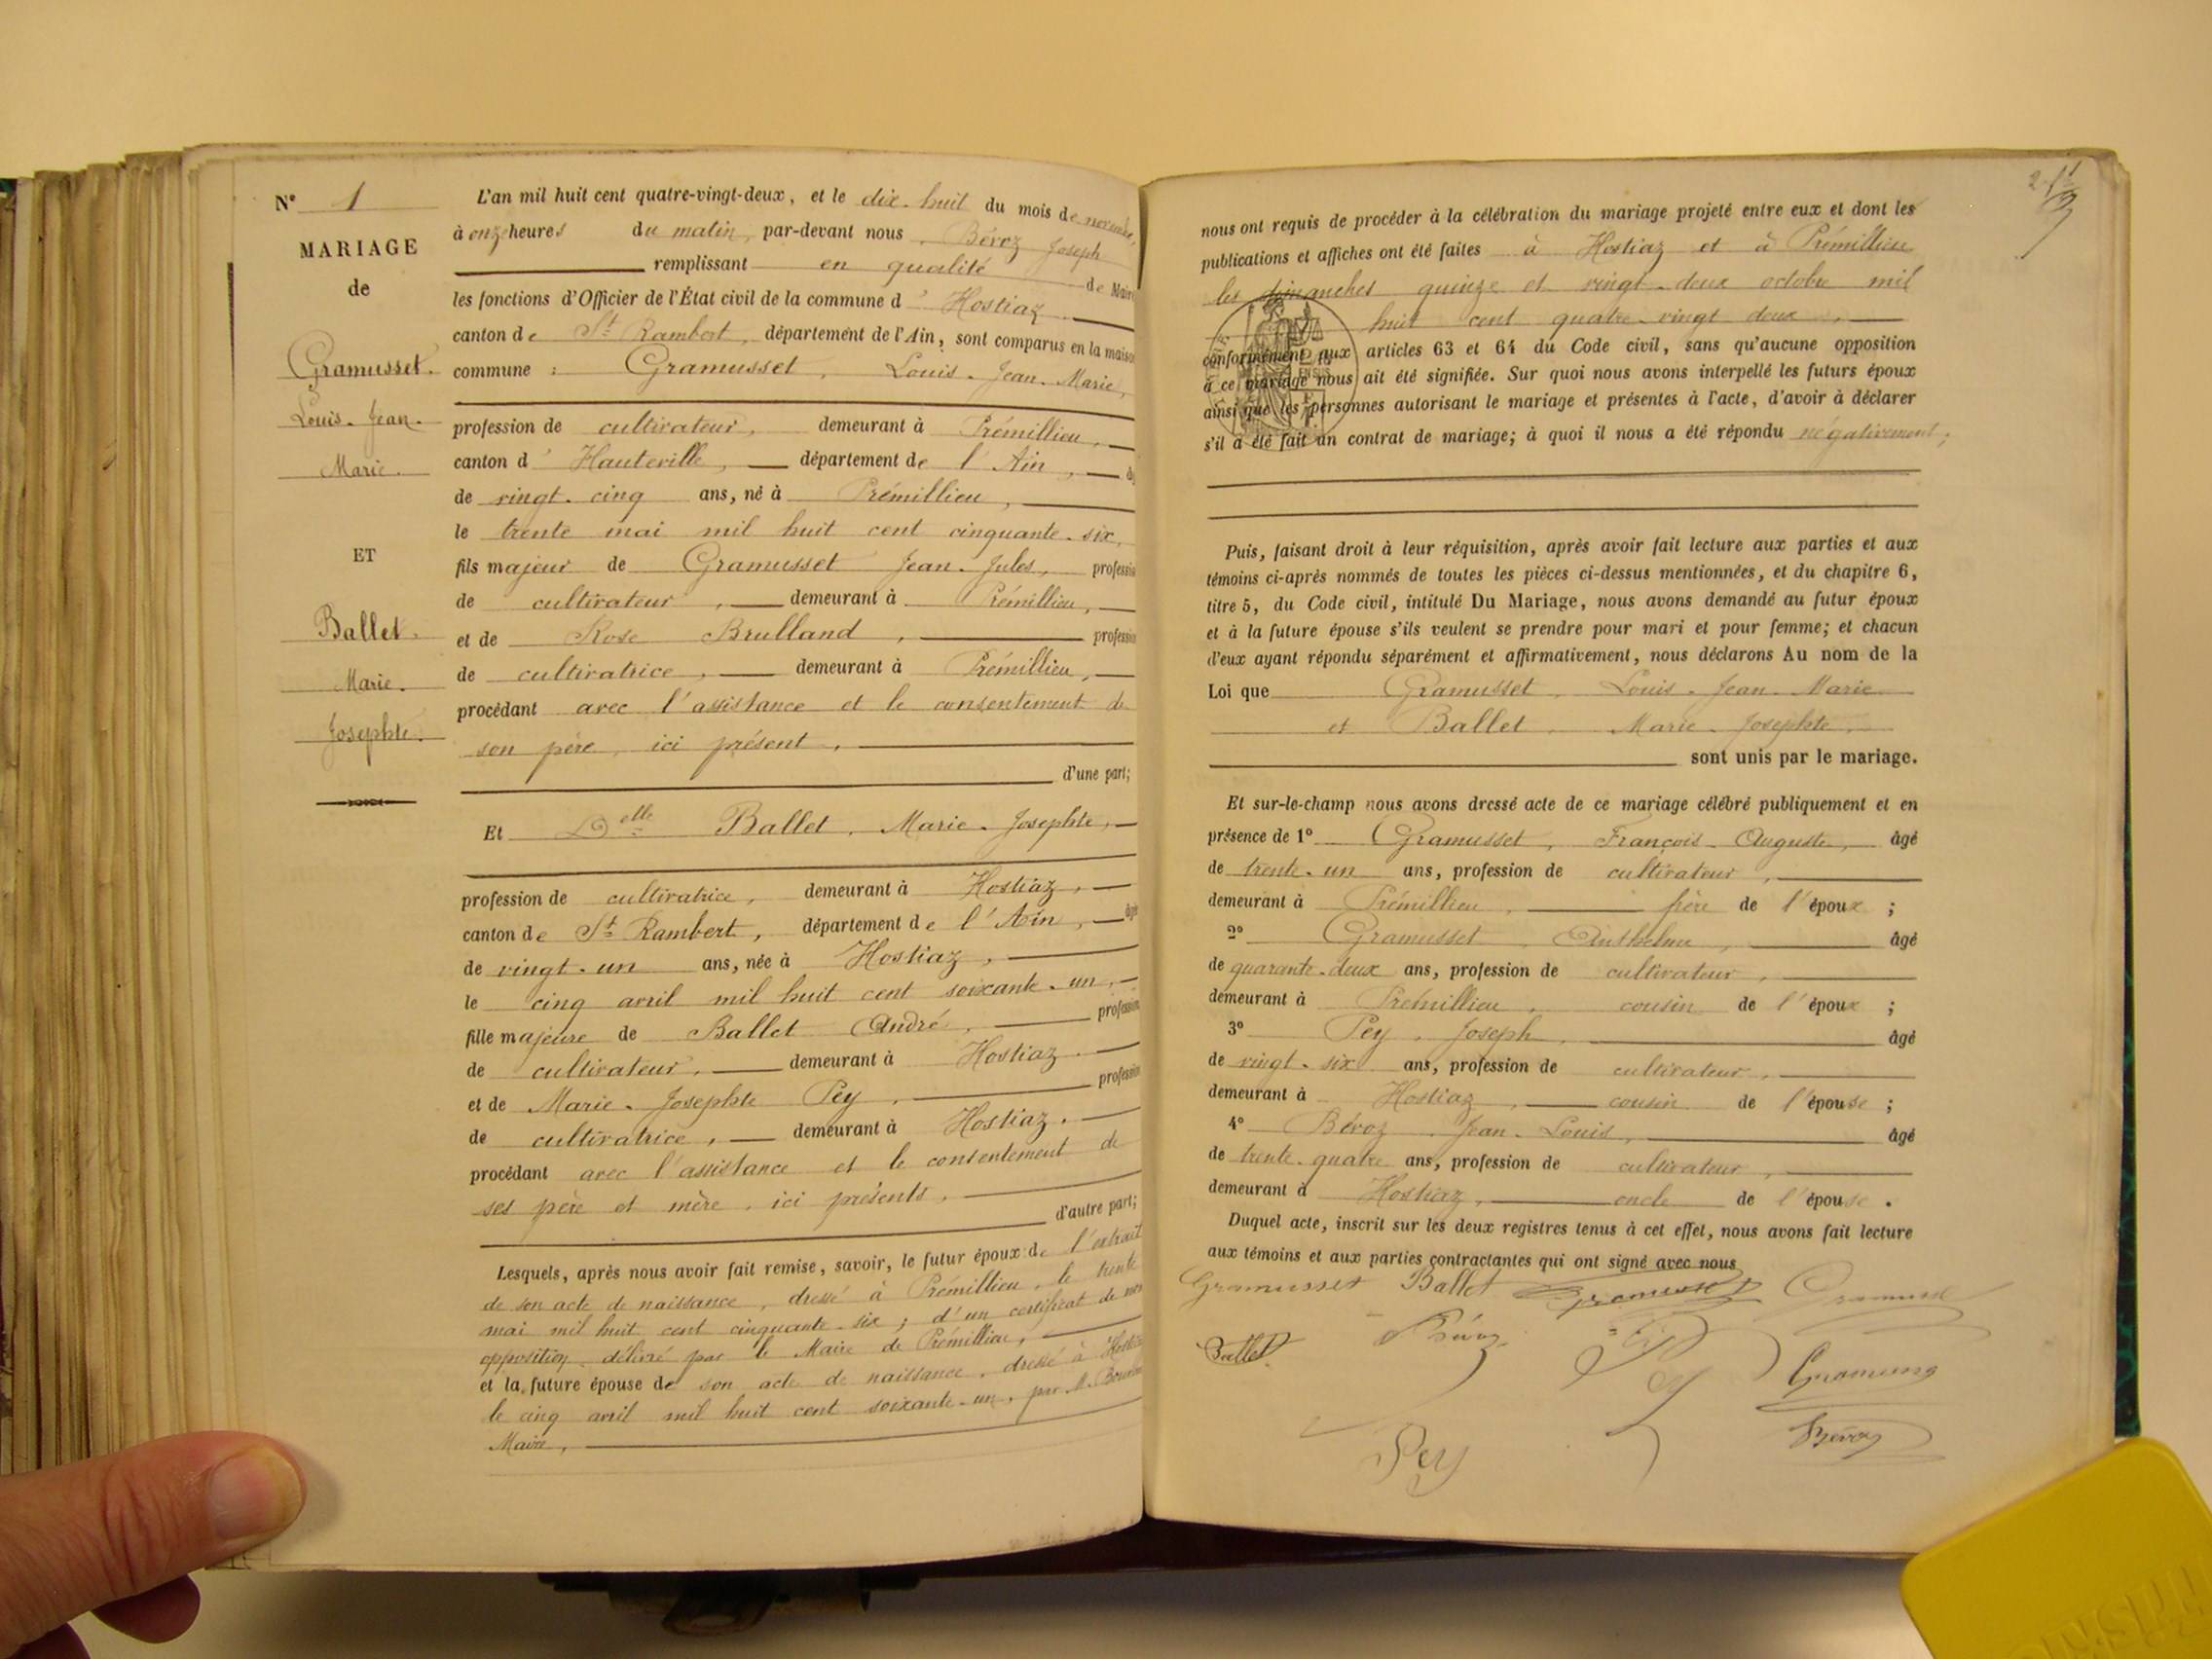 N° 1
MARIAGE
de
Gramusset.
Louis. Jean.
Marie.
ET
Ballet.
Marie.
Josephte.
L'an mil huit cent quatre-vingt-deux, et le dix-huit du mois de novembre,
à onze heures du matin, par-devant nous Béroz Joseph
remplissant en qualité de Maire
les fonctions d'Officier de l'État civil de la commune d'Hostiaz
canton de St Rambert, département de l'Ain, sont comparus en la maison
commune : Gramusset, Louis. Jean. Marie,
profession de cultivateur, demeurant à Prémillieu,
canton d'Hauteville, département de l'Ain,
de vingt-cinq ans, né à Prémillieu,
le trente mai mil huit cent cinquante-six,
fils majeur de Gramusset Jean-Jules, profession
de cultivateur, demeurant à Prémillieu,
et de Rose Brulland, profession
de cultivatrice, demeurant à Prémillieu,
procédant avec l'assistance et le consentement de
son père, ici présent,
d'une part;
Et Delle Ballet, Marie-Josephte,
profession de cultivatrice, demeurant à Hostiaz,
canton de St Rambert, département de l'Ain, âgée
de vingt-un ans, née à Hostiaz,
le cinq avril mil huit cent soixante-un,
fille majeure de Ballet André, profession
de cultivateur, demeurant à Hostiaz.
et de Marie-Josephte Pey, profession
de cultivatrice, demeurant à Hostiaz.
procédant avec l'assistance et le consentement de
ses père et mère, ici présents,
d'autre part;
Lesquels, après nous avoir fait remise, savoir, le futur époux: de l'extrait
de son acte de naissance, dressé à Prémillieu, le trente
mai mil huit cent cinquante-six; d'un certificat de non
opposition délivré par le Maire de Prémillieu,
et la future épouse de son acte de naissance, dressé à Hostiaz
le cinq avril mil huit cent soixante-un, par M.
Maire,
nous ont requis de procéder à la célébration du mariage projeté entre eux et dont les
publications et affiches ont été faites à Hostiaz et à Prémillieu
les dimanches quinze et vingt-deux octobre mil
huit cent quatre-vingt deux,
conformément aux articles 63 et 64 du Code civil, sans qu'aucune opposition
à ce mariage nous ait été signifiée. Sur quoi nous avons interpellé les futurs époux
ainsi que les personnes autorisant le mariage et présentes à l'acte, d'avoir à déclarer
s'il a été fait un contrat de mariage; à quoi il nous a été répondu négativement;
Puis, faisant droit à leur réquisition, après avoir fait lecture aux parties et aux
témoins ci-après nommés de toutes les pièces ci-dessus mentionnées, et du chapitre 6,
titre 5, du Code civil, intitulé Du Mariage, nous avons demandé au futur époux
et à la future épouse s'ils veulent se prendre pour mari et pour femme; et chacun
d'eux ayant répondu séparément et affirmativement, nous déclarons Au nom de la
Loi que Gramusset, Louis-Jean-Marie
et Ballet Marie-Josephte,
sont unis par le mariage.
Et sur-le-champ nous avons dressé acte de ce mariage célébré publiquement et en
présence de 1° Gramusset, François-Auguste, âgé
de trente-un ans, profession de cultivateur,
demeurant à Prémillieu, frère de l'époux ;
2° Gramusset, Anthelme, âgé
de quarante-deux ans, profession de cultivateur,
demeurant à Prémillieu, cousin de l'époux ;
3° Pey, Joseph, âgé
de vingt-six ans, profession de cultivateur,
demeurant à Hostiaz, cousin de l'épouse ;
4° Béroz, Jean-Louis, âgé
de trente-quatre ans, profession de cultivateur,
demeurant à Hostiaz, oncle de l'épouse.
Duquel acte, inscrit sur les deux registres tenus à cet effet, nous avons fait lecture
aux témoins et aux parties contractantes qui ont signé avec nous
Gramusset Ballet Gramusset
Ballet Béroz
Pey Béroz